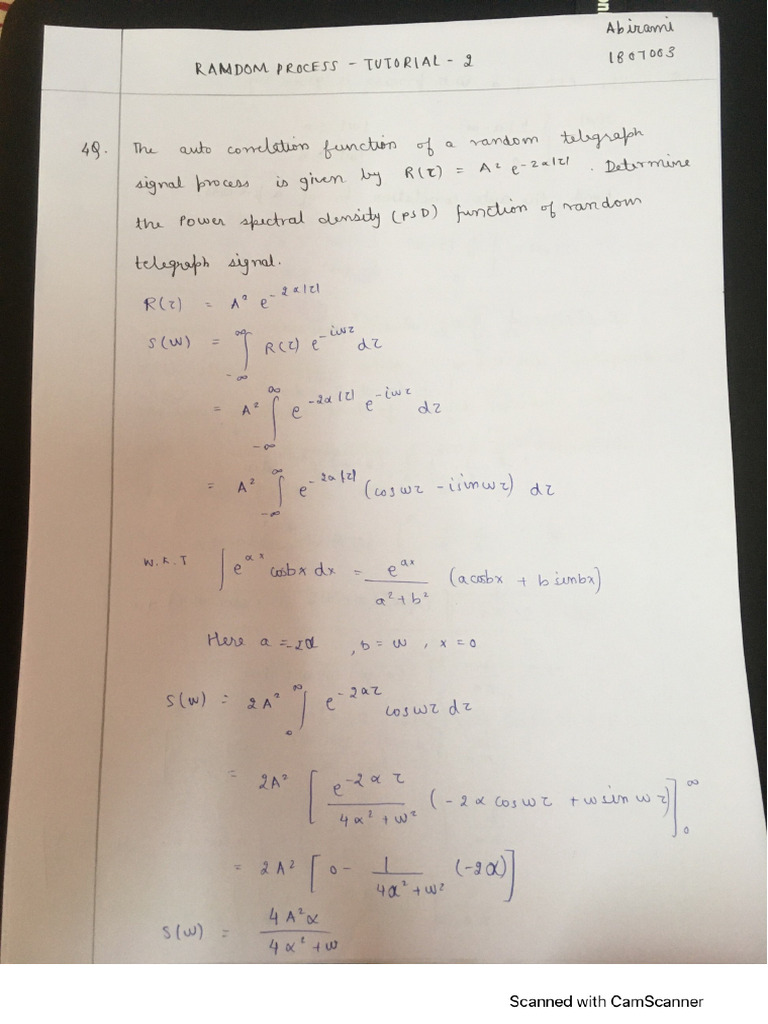 Abirami
1807003
RAMDOM PROCESS - TUTORIAL - 2
4Q. The auto correlation function of a random telegraph
signal process is given by R(τ) = A² e^-2α|τ| . Determine
the Power spectral density (PSD) function of random
telegraph signal.
R(τ) = A² e^-2α|τ|
S(W) = ∫_-∞^∞ R(τ) e^-iωτ dτ
= A² ∫_-∞^∞ e^-2α|τ| e^-iωτ dτ
= A² ∫_-∞^∞ e^-2α|τ| (cosωτ - isinωτ) dτ
W.K.T ∫ e^ax cosbx dx = e^ax / a²+b² (acosbx + b sinbx)
Here a = -2α , b = ω , x = 0
S(ω) = 2A² ∫_0^∞ e^-2ατ cosωτ dτ
= 2A² [ e^-2ατ / 4α²+ω² (-2α cosωτ + ωsinωτ) ]_0^∞
= 2A² [ 0 - 1 / 4α²+ω² (-2α) ]
S(ω) = 4A²α / 4α²+ω
Scanned with CamScanner